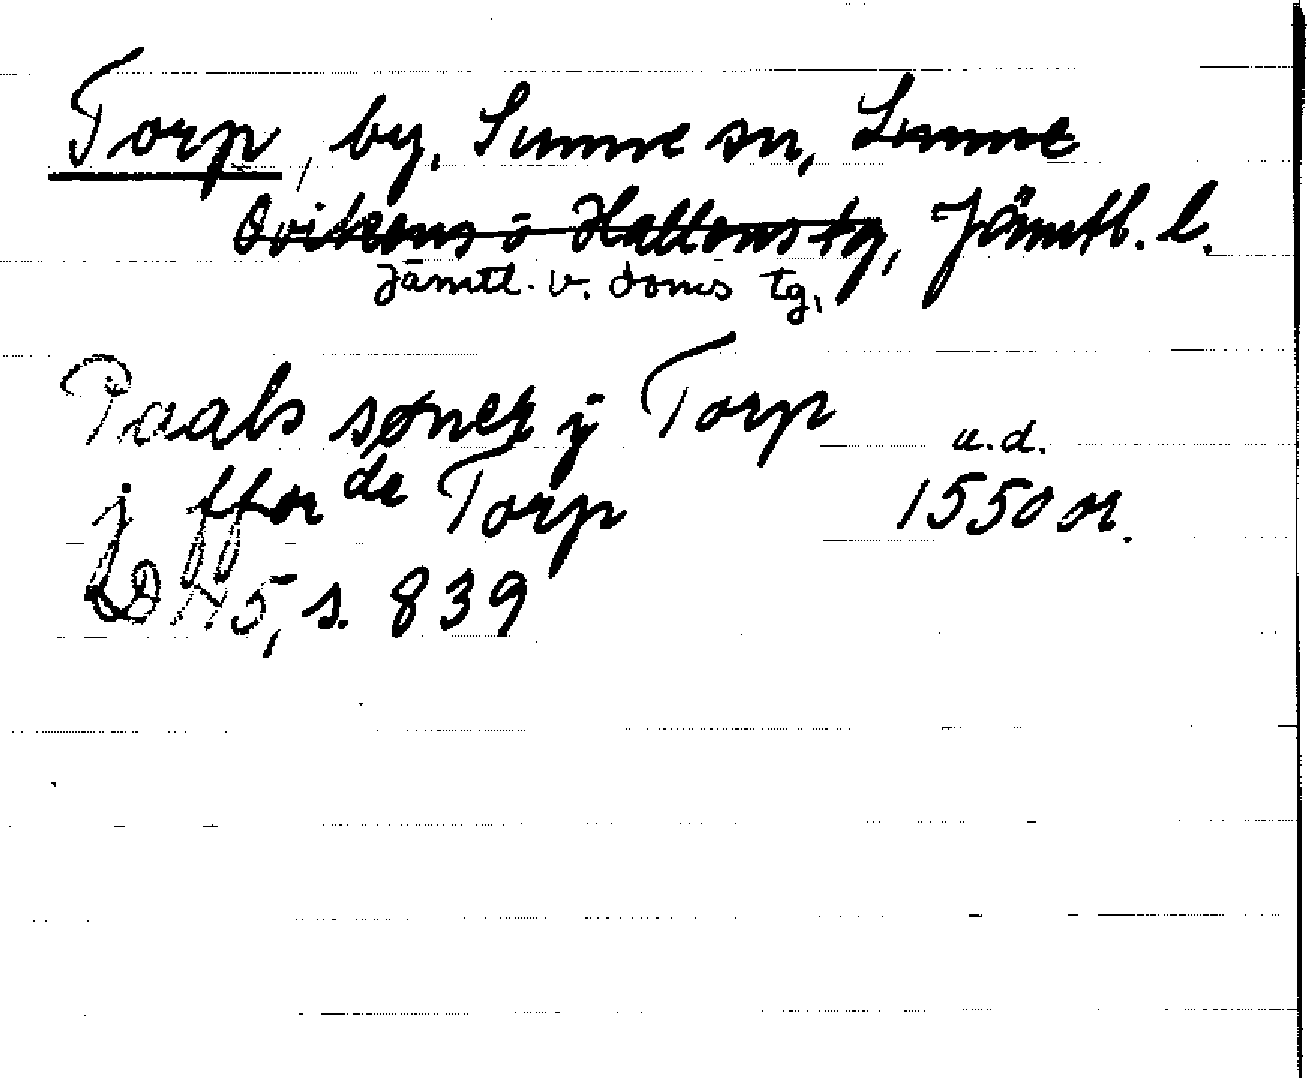 Torp, by, Sunne sn, Sunne
Ovikens o Hallens tg, Jämtl. l.
Jämtl. v. doms tg,
Paals søner j Torp
a.d.
j ffor de Torp 1550 or.
DN 5, s. 839